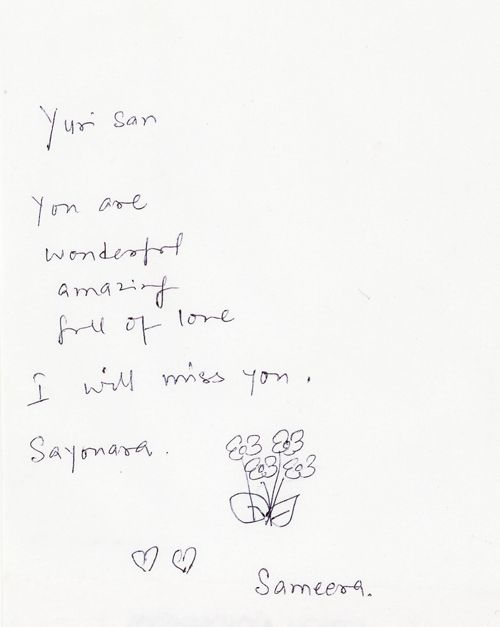 Yuri San
You are
wonderful
amazing
full of love
I will miss you.
Sayonara.
Sameera.